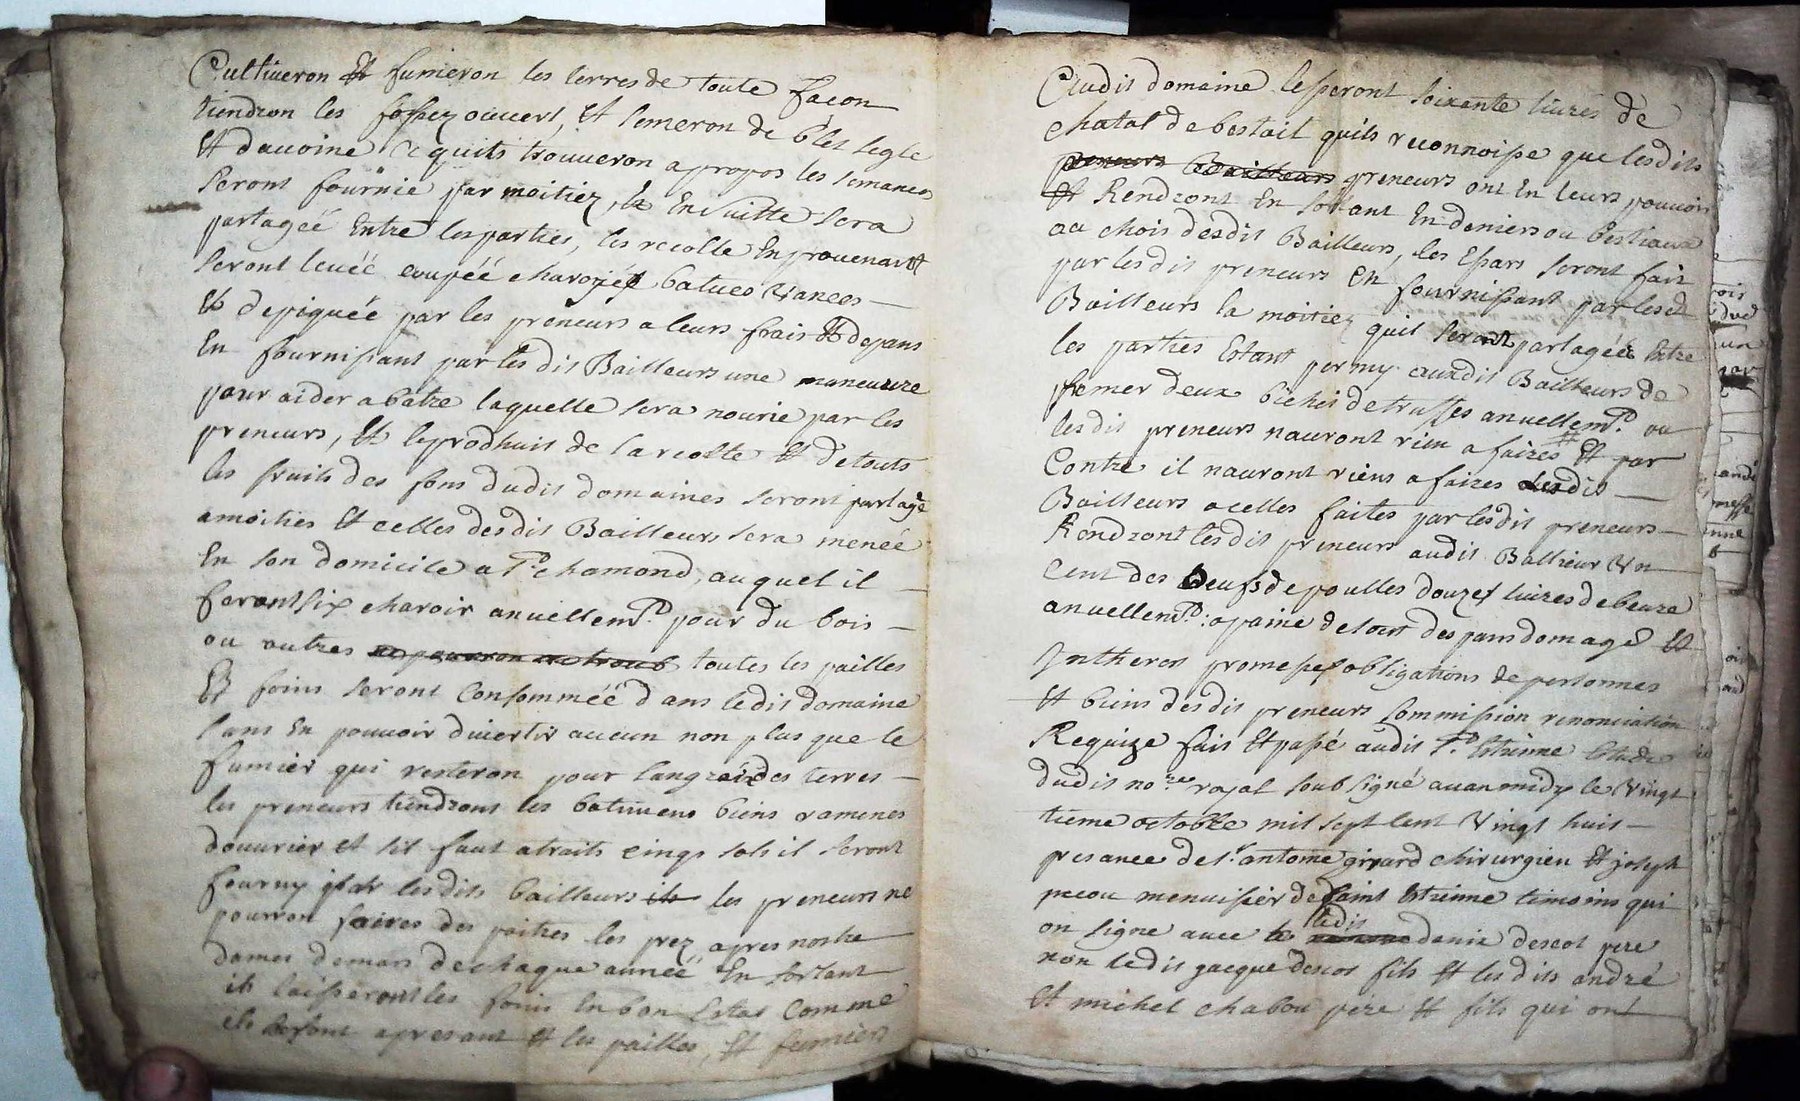 Cultiveron Et fumeron les terres de toute façon
tiendron les fossez ouvert, Et semeron de blet segle
Et davoine ce quils trouveron apropos les semances
seront fournie par moitiez, Et Ensuitte sera
partageé Entre les parties, les recolte En provenant
seront leveéé coupéé charoyéé batues vanees
Et depiqueé par les preneurs a leurs frais Et depans
En fournisant par les dis Bailleurs une maneuvre
pour aider a batre laquelle sera nourie par les
preneurs, Et le prodhuit de la recolte Et de touts
les fruits des fons dudit domaines seront partagé
a moities Et celles desdit Bailleurs sera meneé
En son domicile a St. chamond, auquel il
feront six charoir anuellemt. pour du bois
ou autres ne pourron autroub toutes les pailles
Et foins seront Consomméé dans ledit domaine
sans En pouvoir divertir aucun non plus que le
fumier qui resteron pour langrais des terres
les preneurs tiendrons les batimens biens ramenes
douvrier et sil faut atraits cinqs sols il seront
fourny par lesdits bailleurs ils les preneurs ne
pourron faires des paitres les prez apres nostre
dames de mars de chaque anneé En sortant
ils laisseront les foins En bon Estat Comme
ils sont apresant Et les pailles, Et fumiers
Dudit domaine lesseront soixante livres de
chatal de bestail quils reconnoisse que lesdits
preneurs Bailleurs preneurs ont En leurs pouvoir
Et Rendront En sortant En deniers ou bestiaux
au chois desdit Bailleurs, les Esars seront fait
par lesdit preneurs En fournissant par lesd
Bailleurs la moitiez quil seront partageés Entre
les parties Estant permy auxdit Bailleurs de
semer deux bichets de truffes anuellemt. ou
lesdit preneurs nauront rien a faires Et par
Contre il nauront riens a faires lesdit
Bailleurs a celles faites par lesdit preneurs
Rendront lesdit preneurs audit Ballieur Un
Cent des oeufs de poulles douzes livres de beure
anuellemt. a paine de tout despans domage Et
Intherest promesses obligations de personnes
Et biens desdit preneurs Commission renonciation
Requize fait Et passé audit St. Estienne Etude
dudit nore. royal soubsigné avan midy le vingt
tieme octobre mil sept cent vingt huit
presance de sr. antoine girard chirurgien Et joseph
pecou menuisier de saint Estienne temoins qui
on signe avec le
ledit
denis descot pere
non ledit jacque descos fils Et les dits andré
Et michel chabou pere Et fils qui ont